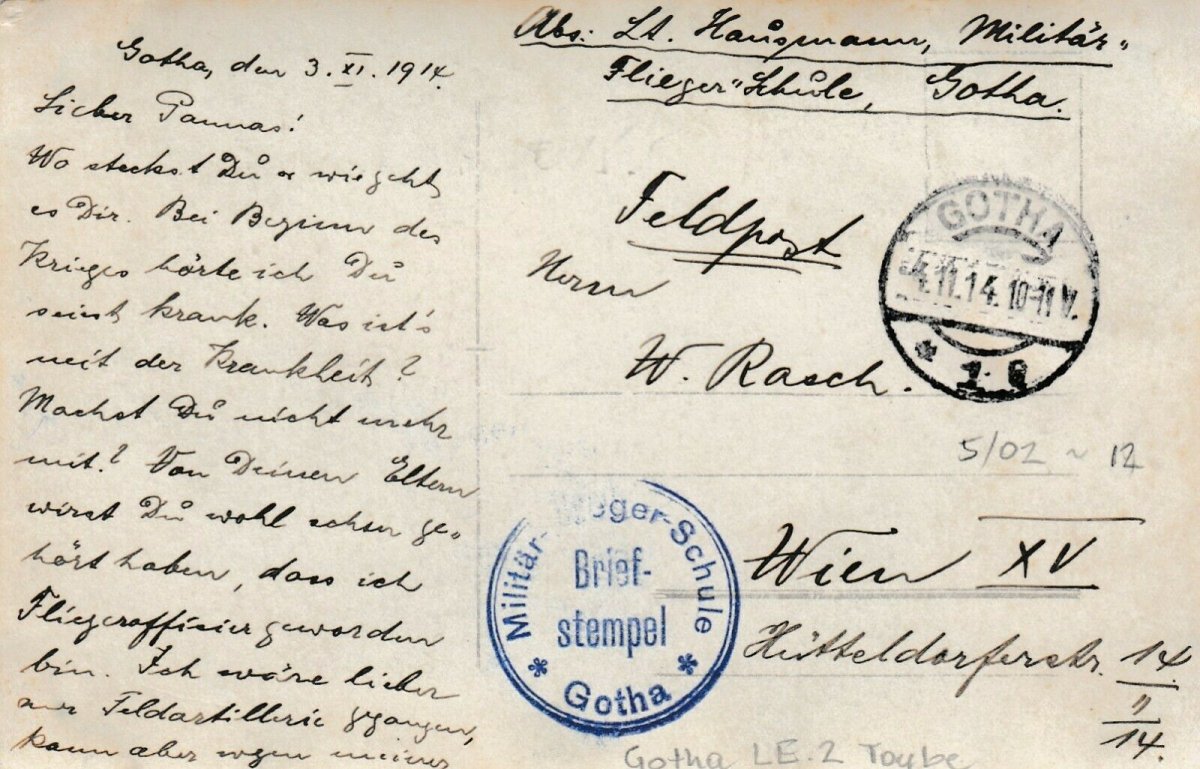 Gotha, den 3. XI. 1914.
Lieber Pannas!
Wo steckst Du u wie geht,
es Dir. Bei Beginn des
Krieges hörte ich Du
seist krank. Was ist's
mit der Krankheit?
Machst Du nicht mehr
mit? Von Deinen Eltern
wirst Du wohl schon ge-
hört haben, dass ich
Fliegeroffizier geworden
bin. Ich wäre lieber
zur Feldartillerie gegangen,
kann aber wgen meiner
Abs: Lt. Hausmann, Militär-
Flieger-Schule, Gotha.
Feldpost
Herrn
W. Rasch.
Wien XV
Hütteldorferstr. 14
11
14.
GOTHA
4.11.14. 10-11 V.
* 1 *
5/02 ~ 12
Militär-Flieger-Schule
Brief-
stempel
* Gotha *
Gotha LE.2 Taube